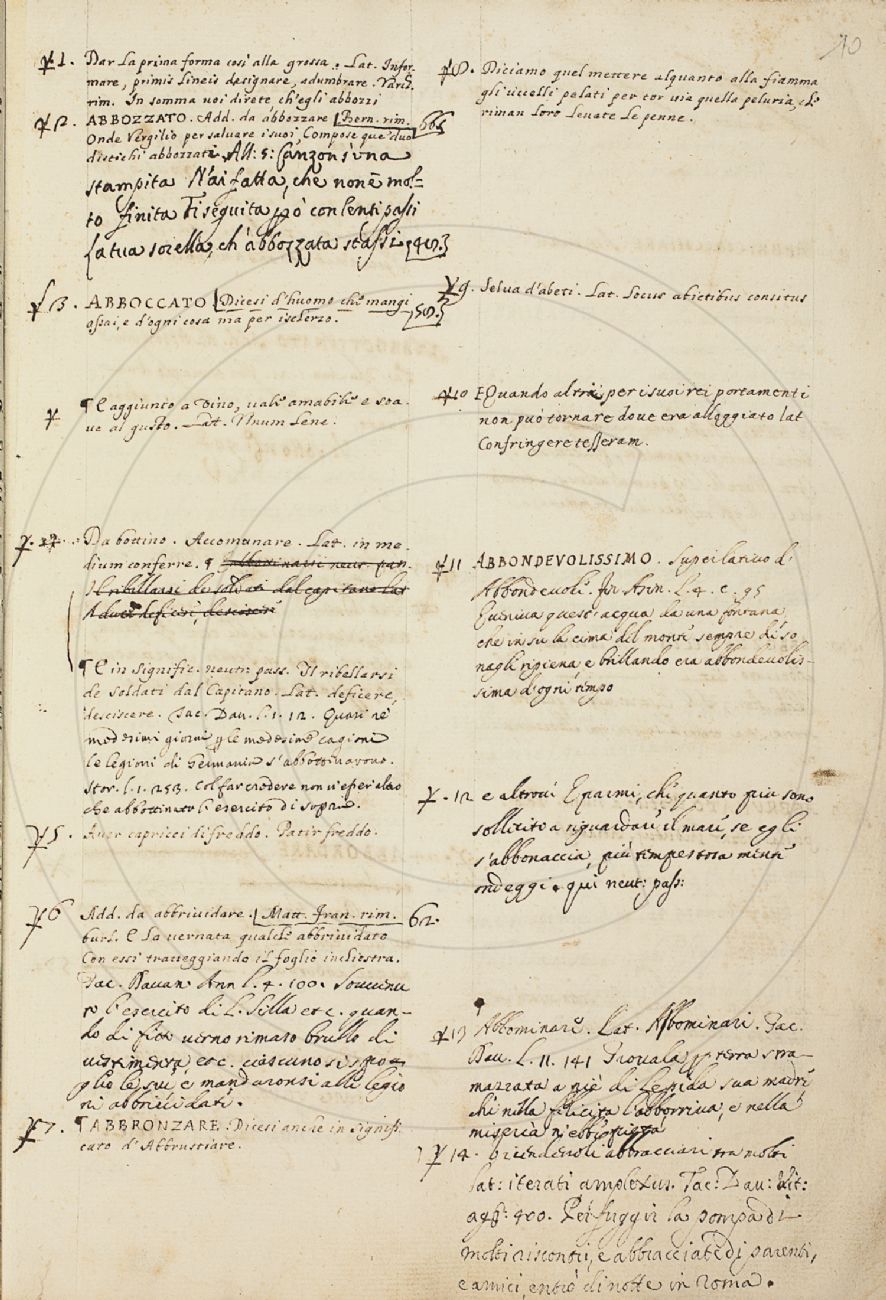 10
1. Dar la prima forma così alla grossa. Lat. Infor-
mare, primis lineis designare, adumbrare. Varch.
rim. In somma voi direte ch'egli abbozzi
2. ABBOZZATO. Add. da abbozzare Bern. rim.
Onde Vergilio per salvare i suoi, Compose que' duo
distichi abbozzati. All: 5: Canzon s'una
stampita N'ai fatta, che non è mol-
to finita Ti seguita però con lenti passi
La tua sorella, ch'abbozzata stassi
3. ABBOCCATO Dicesi d'huomo che mangi
assai, e d'ogni cosa ma per ischerzo.
¶ E aggiunto a vino, vale amabile e soa-
ve al gusto. Lat. Vinum Lene.
Da bottino. Accomunare. Lat. in me-
dium conferre. ¶ Abbottinarsi neut. pas.
Il ribellarsi de soldati dal capitano Lat
deficere, desciscere
¶ E in signific. neutr: pass. Il ribellarsi
de soldati dal Capitano. Lat. deficere,
desciscere. Tac. Dav. l. 1. 12. Quasi ne'
medesimi giorni per le medesime cagioni
le legioni di Germania s'abbottinarono.
Stor. l. 1. 253. Col far credere non v'esser altro
che abbottinato l'esercito di sopra.
5. Aver capricci di freddo. Patir freddo.
6 Add. da abbrividare. Matt. Fran. rim. 62.
burl. E la vernata qualche abbrividato
Con essi tratteggiando il foglio inchiostra.
Tac. Davan Ann l. 4. 100. Sovvenu
to l'esercito di L. Silla etc. quan-
do di fitto verno rimaso brullo di
vestimenta, etc. ciascuno si spo-
gliò le sue e mandaronsi alle legio
ni abbrividati.
7. ¶ ABBRONZARE. Dicesi anche in signifi-
cato d'Abbrustiare.
8. Diciamo quel mettere alquanto alla fiamma
gli uccelli pelati per tor via quella peluria, che
riman loro levate le penne.
9. Selva d'abeti. Lat. Locus abietibus consitus
10 E Quando altri, per i suoi rei portamenti
non può tornare dove era alloggiato lat
Confringere tesseram.
11 ABBONDEVOLISSIMO. Superlativo di
Abbondevole. Fir Asin. L. 4. c. 95
Eveniva quest'acqua da una fontana
che in su la cima del monte sempre di so
nagli ripiena e brillando era abbondevolis-
sima d'ogni tempo
12 e altrove E parmi, che quanto più sono
sollicito a riguardare il mare, se egli
s'abbonaccia, più tempestosa mente
ondeggi. qui neut: pass:
13 Abbominare. Lat. Abominari. Tac.
Dav. L. 11. 141 Trovala per terra stra-
mazzata a piè di Lepida sua madre
che nella felicità l'abborriva, e nella
miseria n'ebbe
14. vicendevoli abbracciari tra molti
lat: iterati amplexus. Tac: Dav: Vit:
400. Per fuggir la pompa di
molti riscontri, e abbracciate di parenti,
e amici, entrò di notte in Roma.